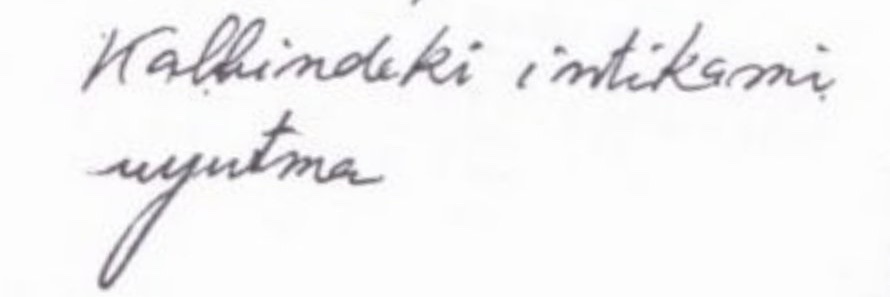 Kalbindeki intikamı
uyutma